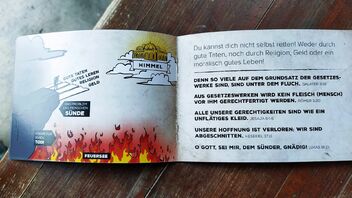 HIMMEL
GUTE TATEN
GUTES LEBEN
RELIGION
GELD
DAS PROBLEM
DES MENSCHEN:
SÜNDE
TOD!
FEUERSEE
Du kannst dich nicht selbst retten! Weder durch
gute Taten, noch durch Religion, Geld oder ein
moralisch gutes Leben!
DENN SO VIELE AUF DEM GRUNDSATZ DER GESETZES-
WERKE SIND, SIND UNTER DEM FLUCH. GALATER 3:10
AUS GESETZESWERKEN WIRD KEIN FLEISCH (MENSCH)
VOR IHM GERECHTFERTIGT WERDEN. RÖMER 3:20
ALLE UNSERE GERECHTIGKEITEN SIND WIE EIN
UNFLÄTIGES KLEID. JESAJA 64:6
UNSERE HOFFNUNG IST VERLOREN; WIR SIND
ABGESCHNITTEN. HESEKIEL 37:11
O GOTT, SEI MIR, DEM SÜNDER, GNÄDIG! LUKAS 18:13